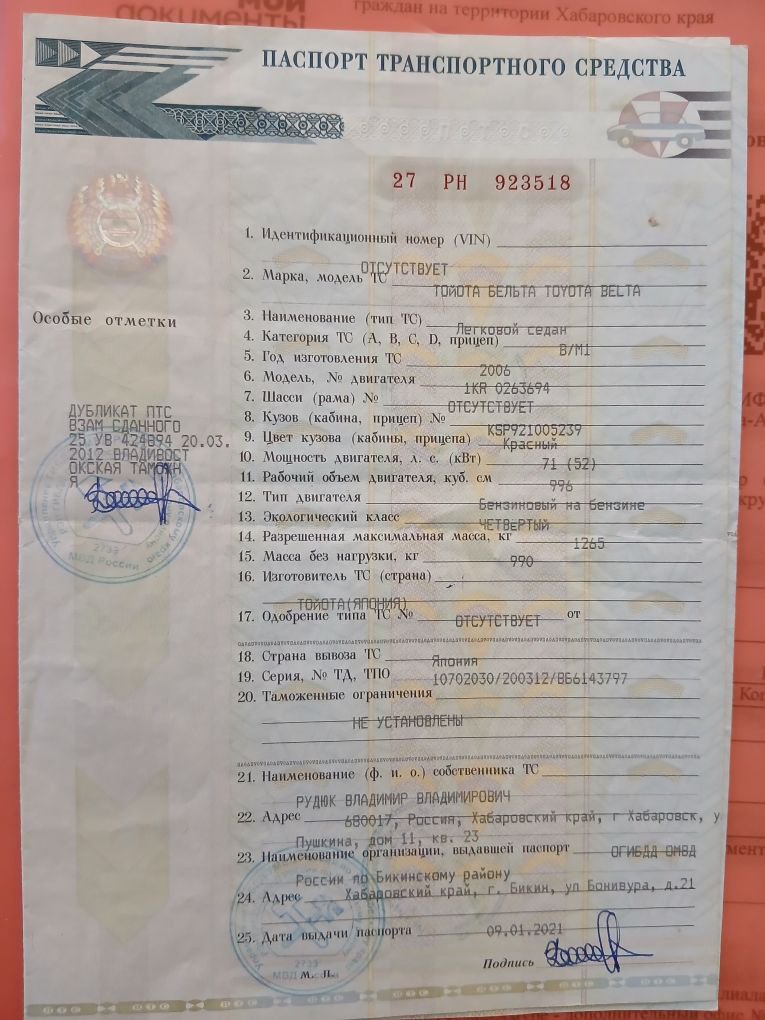 мои
документы
граждан на территории Хабаровского края
ПАСПОРТ ТРАНСПОРТНОГО СРЕДСТВА
27 РН 923518
1. Идентификационный номер (VIN)
ОТСУТСТВУЕТ
2. Марка, модель ТС
ТОЙОТА БЕЛЬТА TOYOTA BELTA
Особые отметки
3. Наименование (тип ТС)
Легковой седан
4. Категория ТС (A, B, C, D, прицеп)
B/M1
5. Год изготовления ТС
2006
6. Модель, № двигателя
1KR 0263694
7. Шасси (рама) №
ОТСУТСТВУЕТ
8. Кузов (кабина, прицеп) №
KSP921005239
9. Цвет кузова (кабины, прицепа)
Красный
10. Мощность двигателя, л. с. (кВт)
71 (52)
11. Рабочий объем двигателя, куб. см
996
12. Тип двигателя
Бензиновый на бензине
13. Экологический класс
ЧЕТВЕРТЫЙ
14. Разрешенная максимальная масса, кг
1265
15. Масса без нагрузки, кг
990
16. Изготовитель ТС (страна)
ТОЙОТА(ЯПОНИЯ)
17. Одобрение типа ТС №
ОТСУТСТВУЕТ
от
ДУБЛИКАТ ПТС
ВЗАМ СДАННОГО
25 УВ 424894 20.03.
2012 ВЛАДИВОСТ
ОКСКАЯ ТАМОЖН
Я
2733
МВД России
18. Страна вывоза ТС
Япония
19. Серия, № ТД, ТПО
10702030/200312/ВБ6143797
20. Таможенные ограничения
НЕ УСТАНОВЛЕНЫ
21. Наименование (ф. и. о.) собственника ТС
РУДЮК ВЛАДИМИР ВЛАДИМИРОВИЧ
22. Адрес
680017, Россия, Хабаровский край, г Хабаровск, у
Пушкина, дом 11, кв. 23
23. Наименование организации, выдавшей паспорт
ОГИБДД ОМВД
России по Бикинскому району
24. Адрес
Хабаровский край, г. Бикин, ул Бонивура, д.21
25. Дата выдачи паспорта
09.01.2021
2733
МВД России
М. П.
Подпись